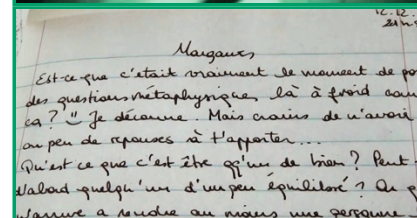 12.12.
Margaux,
Est-ce que c'était vraiment le moment de po
des questions métaphysiques, là à froid com
ça ? Je déconne. Mais crains de n'avoir
un peu de réponses à t'apporter...
Qu'est ce que c'est être qq'un de bien ? Peut-
d'abord quelqu'un d'un peu équilibré ? Qu
arrive à rendre au moins une personne